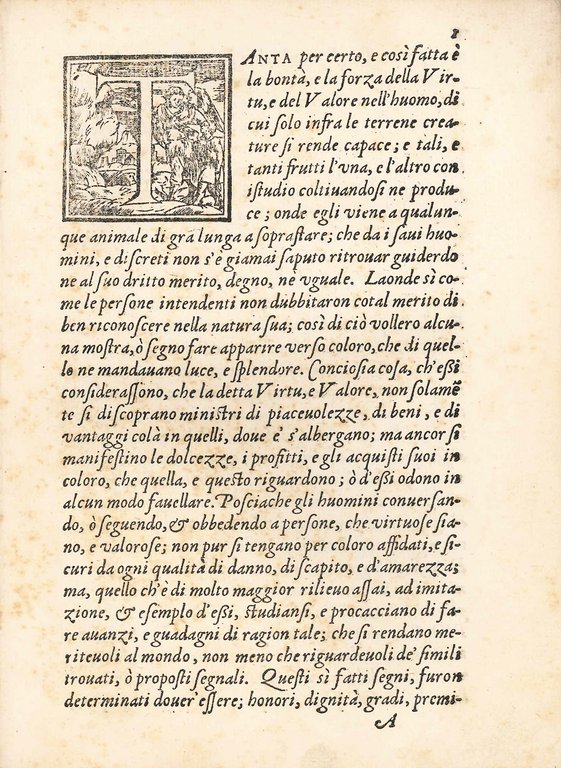 1
TANTA per certo, e così fatta è
la bontà, e la forza della Vir-
tu, e del Valore nell'huomo, di
cui solo infra le terrene crea-
ture si rende capace; e tali, e
tanti frutti l'vna, e l'altro con
istudio coltiuandosi ne produ-
ce; onde egli viene a qualun-
que animale di gra lunga a soprastare; che da i saui huo-
mini, e discreti non s'è giamai saputo ritrouar guiderdo
ne al suo dritto merito, degno, nè vguale. Laonde sì co-
me le persone intendenti non dubbitaron cotal merito di
ben riconoscere nella natura sua; così di ciò vollero alcu-
na mostra, ò segno fare apparire verso coloro, che di quel-
lo ne mandauano luce, e splendore. Conciosia cosa, ch'essi
considerassono, che la detta Virtu, e Valore, non solamē
te si discoprano ministri di piaceuolezze, di beni, e di
vantaggi colà in quelli, doue è s'albergano; ma ancor si
manifestino le dolcezze, i profitti, e gli acquisti suoi in
coloro, che quella, e questo riguardono; ò d'essi odono in
alcun modo fauellare. Posciache gli huomini conuersan-
do, ò seguendo, & obbedendo a persone, che virtuose sia-
no, e valorose; non pur si tengano per coloro affidati, e si-
curi da ogni qualità di danno, di scapito, e d'amarezza;
ma, quello ch'è di molto maggior rilieuo assai, ad imita-
zione, & esempio d'essi, studiansi, e procacciano di fa-
re auanzi, e guadagni di ragion tale; che si rendano me-
riteuoli al mondo, non meno che riguardeuoli de' simili
trouati, ò proposti segnali. Questi sì fatti segni, furon
determinati douer'essere; honori, dignità, gradi, premi-
A